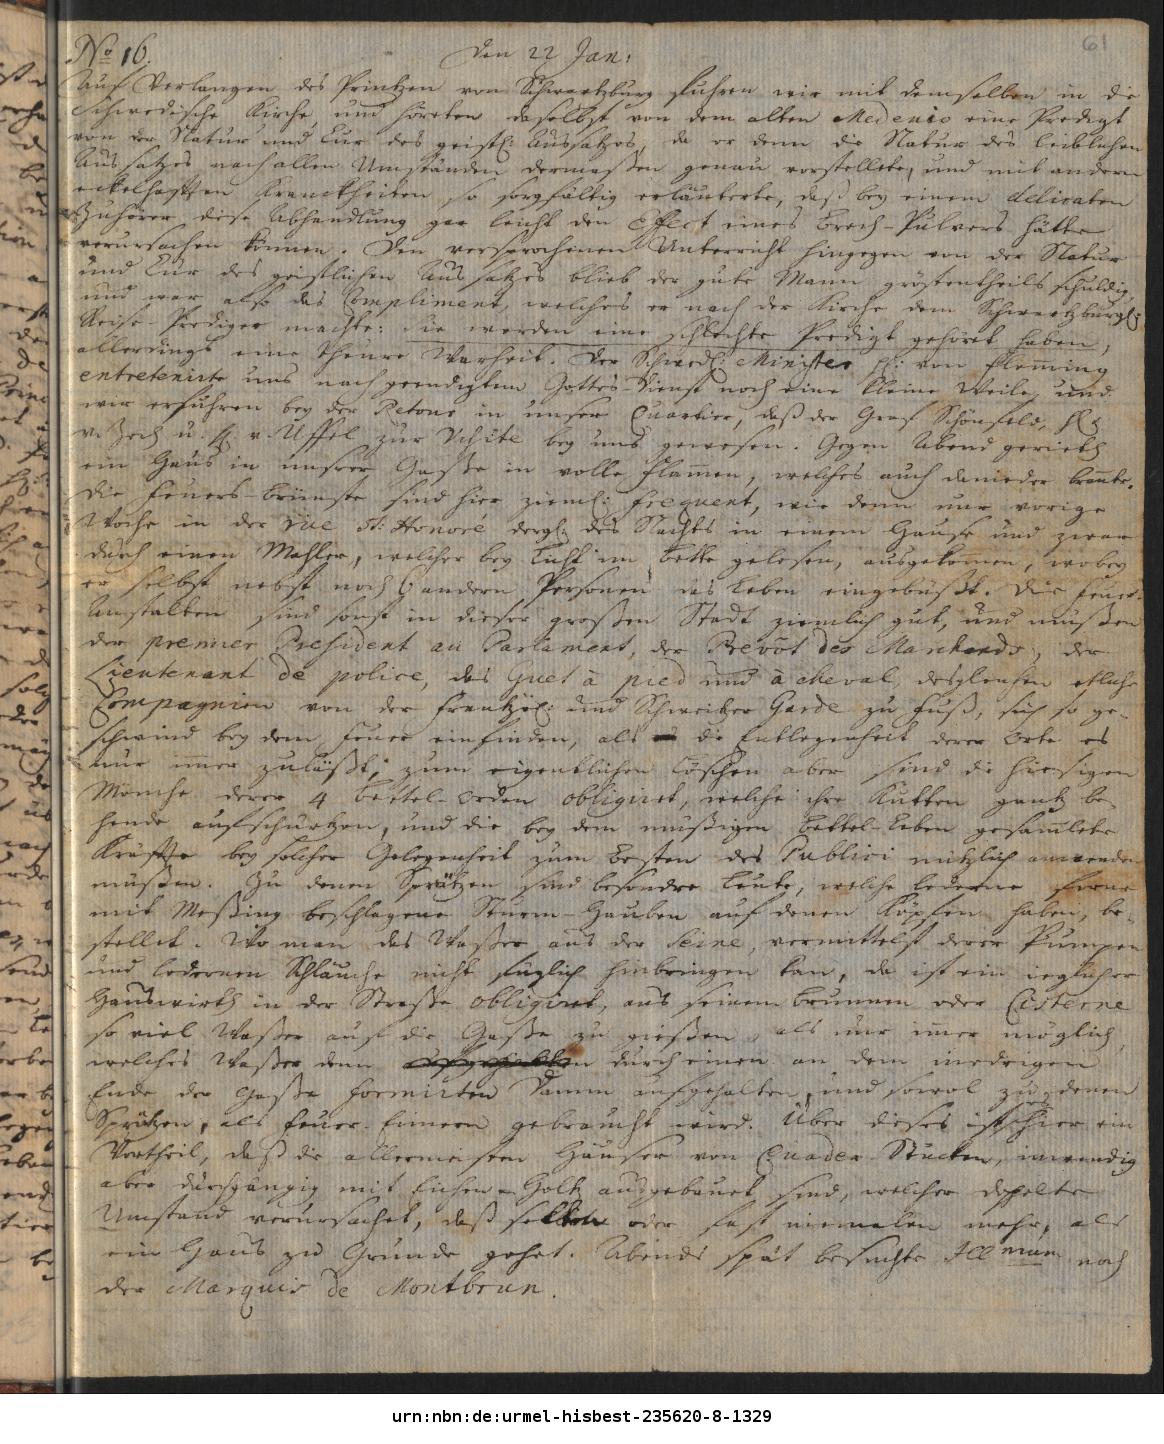 61
No 16. Den 22 Jan:
Auf Verlangen des Printzen von Schwartzburg fuhren wir mit demselben in die
Schwedische Kirche, und höreten daselbst von dem alten Medenio eine Predigt
von der Natur und Cur des geistl: Aussatzes, da er denn die Natur des leiblichen
Aussatzes nach allen Umständen dermaßen genau vorstellete, und mit andern
eckelhafften Kranckheiten so sorgfältig erläuterte, daß bey einem delicaten
Zuhörer diese Abhandlung gar leicht den Effect eines Brech-Pulvers hätte
verursachen können. Den versprochenen Unterricht hingegen von der Natur
und Cur des geistlichen Aussatzes blieb der gute Mann gröstentheils schuldig,
und war also das Compliment, welches er nach der Kirche dem Schwartzburgl:
Reise-Prediger machte: Sie werden eine schlechte Predigt gehöret haben,
allerdings eine theure Warheit. Der Schwed: Minister H: von Fleming
entretenirte uns nach geendigtem Gottes-Dienst noch eine kleine Weile, und
wir erfuhren bey der Retour in unser Quartier, daß der Graf Schönfeld, H:
v. Zech u. H. v. Uffel zur Visite bey uns gewesen. Gegen Abend gerieth
ein Haus in unsrer Gaße in volle Flamen, welches auch danieder brante.
Die Feuers-Brünste sind hier zieml: frequent, wie denn nur vorige
Woche in der rüe St: Honoré dergl: des Nachts in einem Hause und zwar
durch einen Mahler, welcher bey Licht im Bette gelesen, ausgekomen, wobey
er selbst nebst noch 6 andern Personen das Leben eingebüßt. Die Feuer-
Anstalten sind sonst in dieser großen Stadt ziemlich gut, und müßen
der premier President au Parlament, der Prevôt des Marchands, der
Lieutenant de police, das Guet à pied und à cheval, desgleichen etliche
Compagnien von der Frantzös: und Schweitzer Garde zu Fuß, sich so ge-
schwind bey dem Feuer einfinden, als die Entlegenheit derer Orte es
nur imer zuläßt; zum eigentlichen Löschen aber sind die hiesigen
Mönche derer 4 Bettel-Orden obligiret, welche ihre Kutten gantz be-
hende aufschürtzen, und die bey dem müßigen Bettel-Leben gesamlete
Kräffte bey solcher Gelegenheit zum Besten des Publici nützlich anwenden
müßen. Zu denen Sprützen sind besondre Leute, welche lederne ferne
mit Meßing beschlagene Sturm-Hauben auf denen Köpfen haben, be-
stellet. Wo man das Waßer aus der Seine, vermittelst derer Pumpen
und ledernen Schläuche nicht füglich hinbringen kan, da ist ein ieglicher
Hauswirth in der Straße obligiret, aus seinem Brunnen oder Cisterne
so viel Waßer auf die Gaße zu gießen, als nur imer möglich,
welches Waßer denn durch einen an dem niedrigen
Ende der Gaße formirten Damm aufgehalten, und sowol zu denen
Sprützen, als Feuer-Eimern gebraucht wird. Über dieses ist hier ein
Vortheil, daß die allermeisten Häuser von Quader-Stücken, inwendig
aber durchgängig mit Eichen-Holtz ausgebauet sind, welcher doppelte
Umstand verursachet, daß selten oder fast niemalen mehr, als
ein Haus zu Grunde gehet. Abends spät besuchte Illmum noch
der Marquis de Montbrun.
urn:nbn:de:urmel-hisbest-235620-8-1329